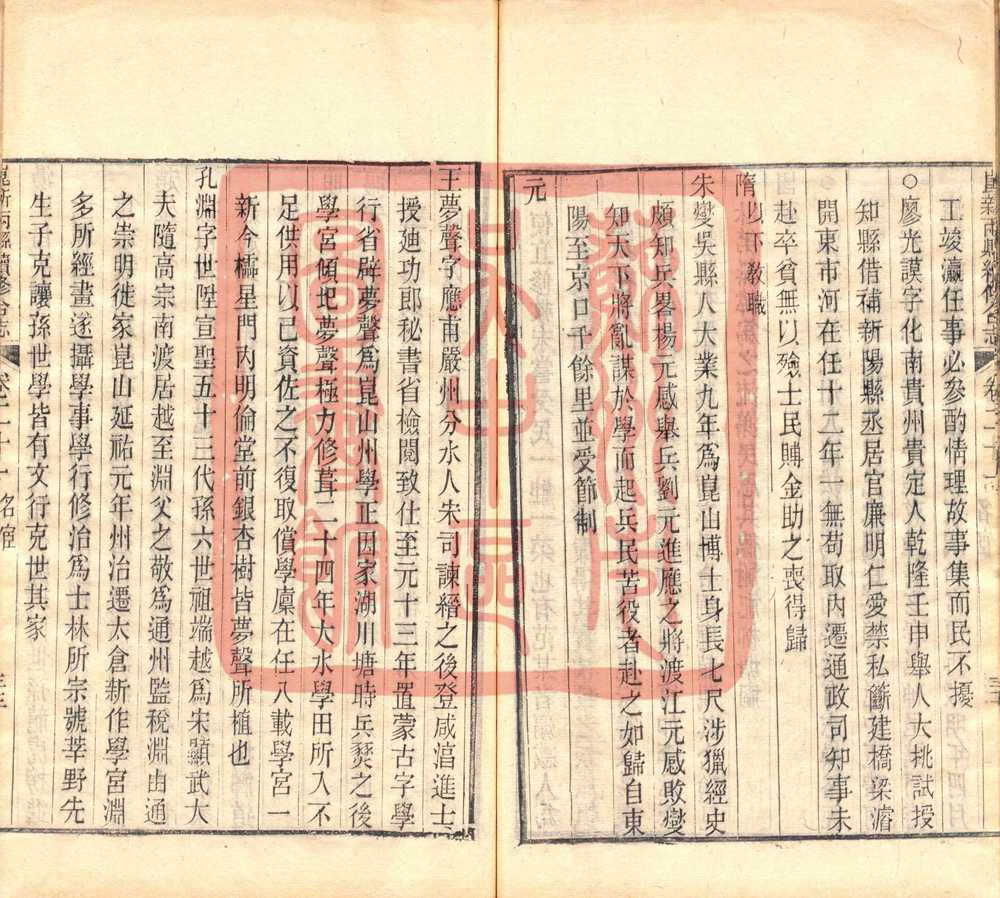 工竣瀛任事必參酌情理故事集而民不擾
○廖光謨字化南貴州貴定人乾隆壬申舉人大挑試授
知縣借補新陽縣丞居官廉明仁愛禁私斷建橋梁濬
開東市河在任十二年一無苟取內遷通政司知事未
赴卒貧無以殮士民賻金助之喪得歸
隋以下教職
朱燮吳縣人大業九年爲崑山博士身長七尺涉獵經史
頗知兵畧楊元感舉兵劉元進應之將渡江元感敗燮
知天下將亂謀於學而起兵民苦役者赴之如歸自東
陽至京口千餘里並受節制
元
王夢聲字應甫嚴州分水人朱司諫縉之後登咸湻進士
授廸功郎秘書省檢閱致仕至元十三年置蒙古字學
行省辟夢聲爲崑山州學正因家湖川塘時兵燹之後
學宮傾圯夢聲極力修葺二十四年大水學田所入不
足供用以己資佐之不復取償學廩在任八載學宮一
新今櫺星門內明倫堂前銀杏樹皆夢聲所植也
孔淵字世陞宣聖五十三代孫六世祖端越爲宋顯武大
夫隨高宗南渡居越至淵父之敬爲通州監稅淵由通
之崇明徙家崑山延祐元年州治遷太倉新作學宮淵
多所經畫遂攝學事學行修治爲士林所宗號莘野先
生子克讓孫世學皆有文行克世其家
崑新兩縣續修合志
卷二十一 名宦